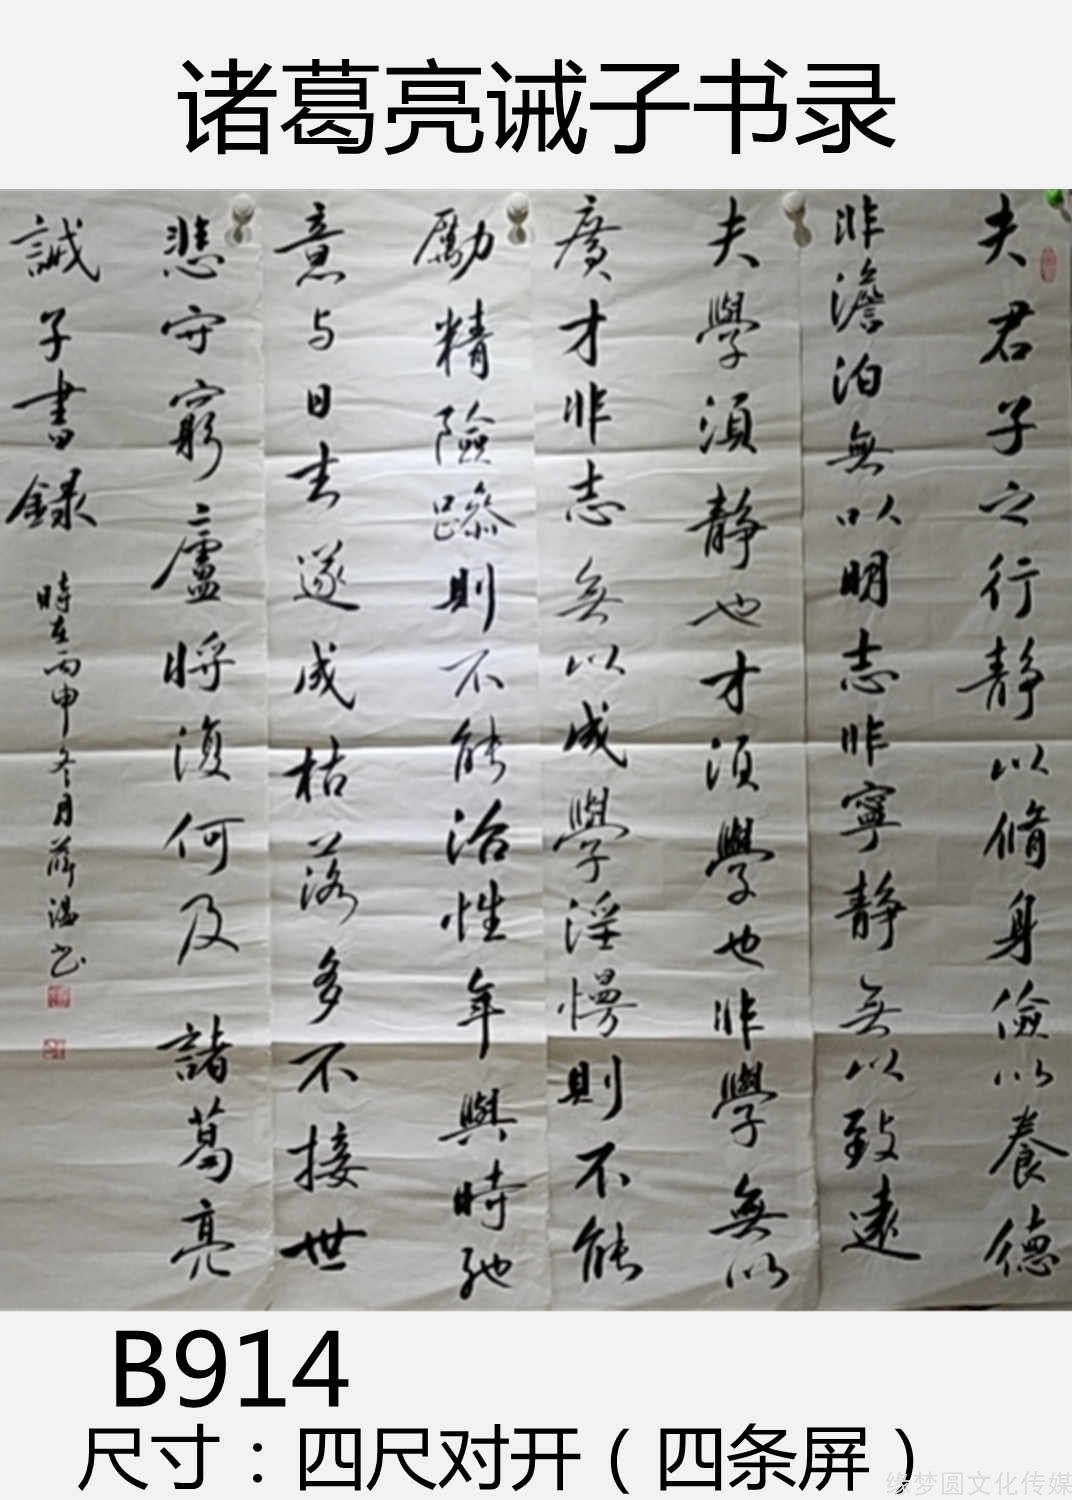 诸葛亮诫子书录
夫君子之行静以脩身儉以養德
非澹泊無以明志非寧静無以致遠
夫學須静也才須學也非學無以
廣才非志無以成學淫慢則不能
勵精險躁則不能治性年與時馳
意与日去遂成枯落多不接世
悲守窮廬將復何及 諸葛亮
誡子書錄
時在丙申冬月薛温书
B914
尺寸：四尺对开（四条屏）
缘梦圆文化传媒